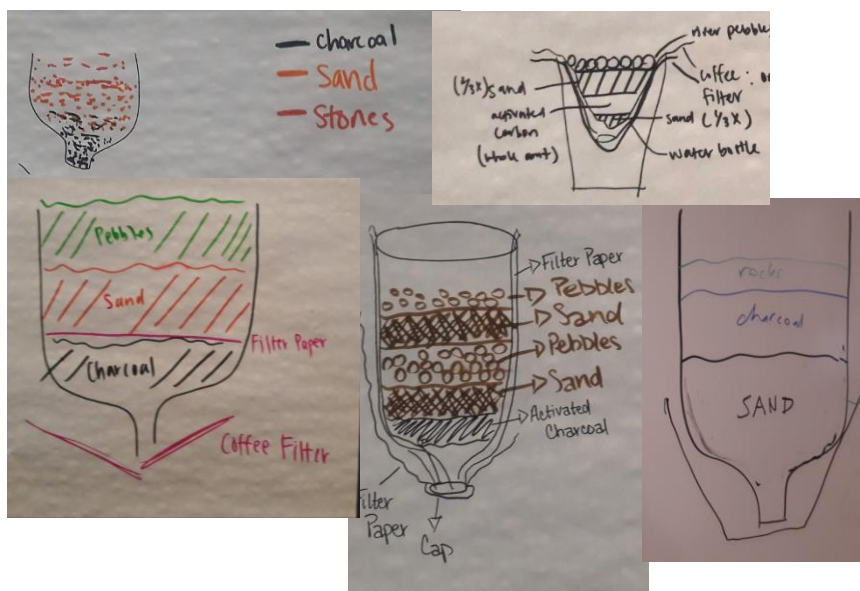 charcoal
Sand
Stones
river pebbles
(1/3x) sand
coffee
filter
activated
carbon
(whole amt)
sand (1/3x)
water bottle
Pebbles
Sand
Filter Paper
Charcoal
Coffee Filter
Filter Paper
Pebbles
Sand
Pebbles
Sand
Activated
Charcoal
Filter
Paper
Cap
rocks
charcoal
SAND